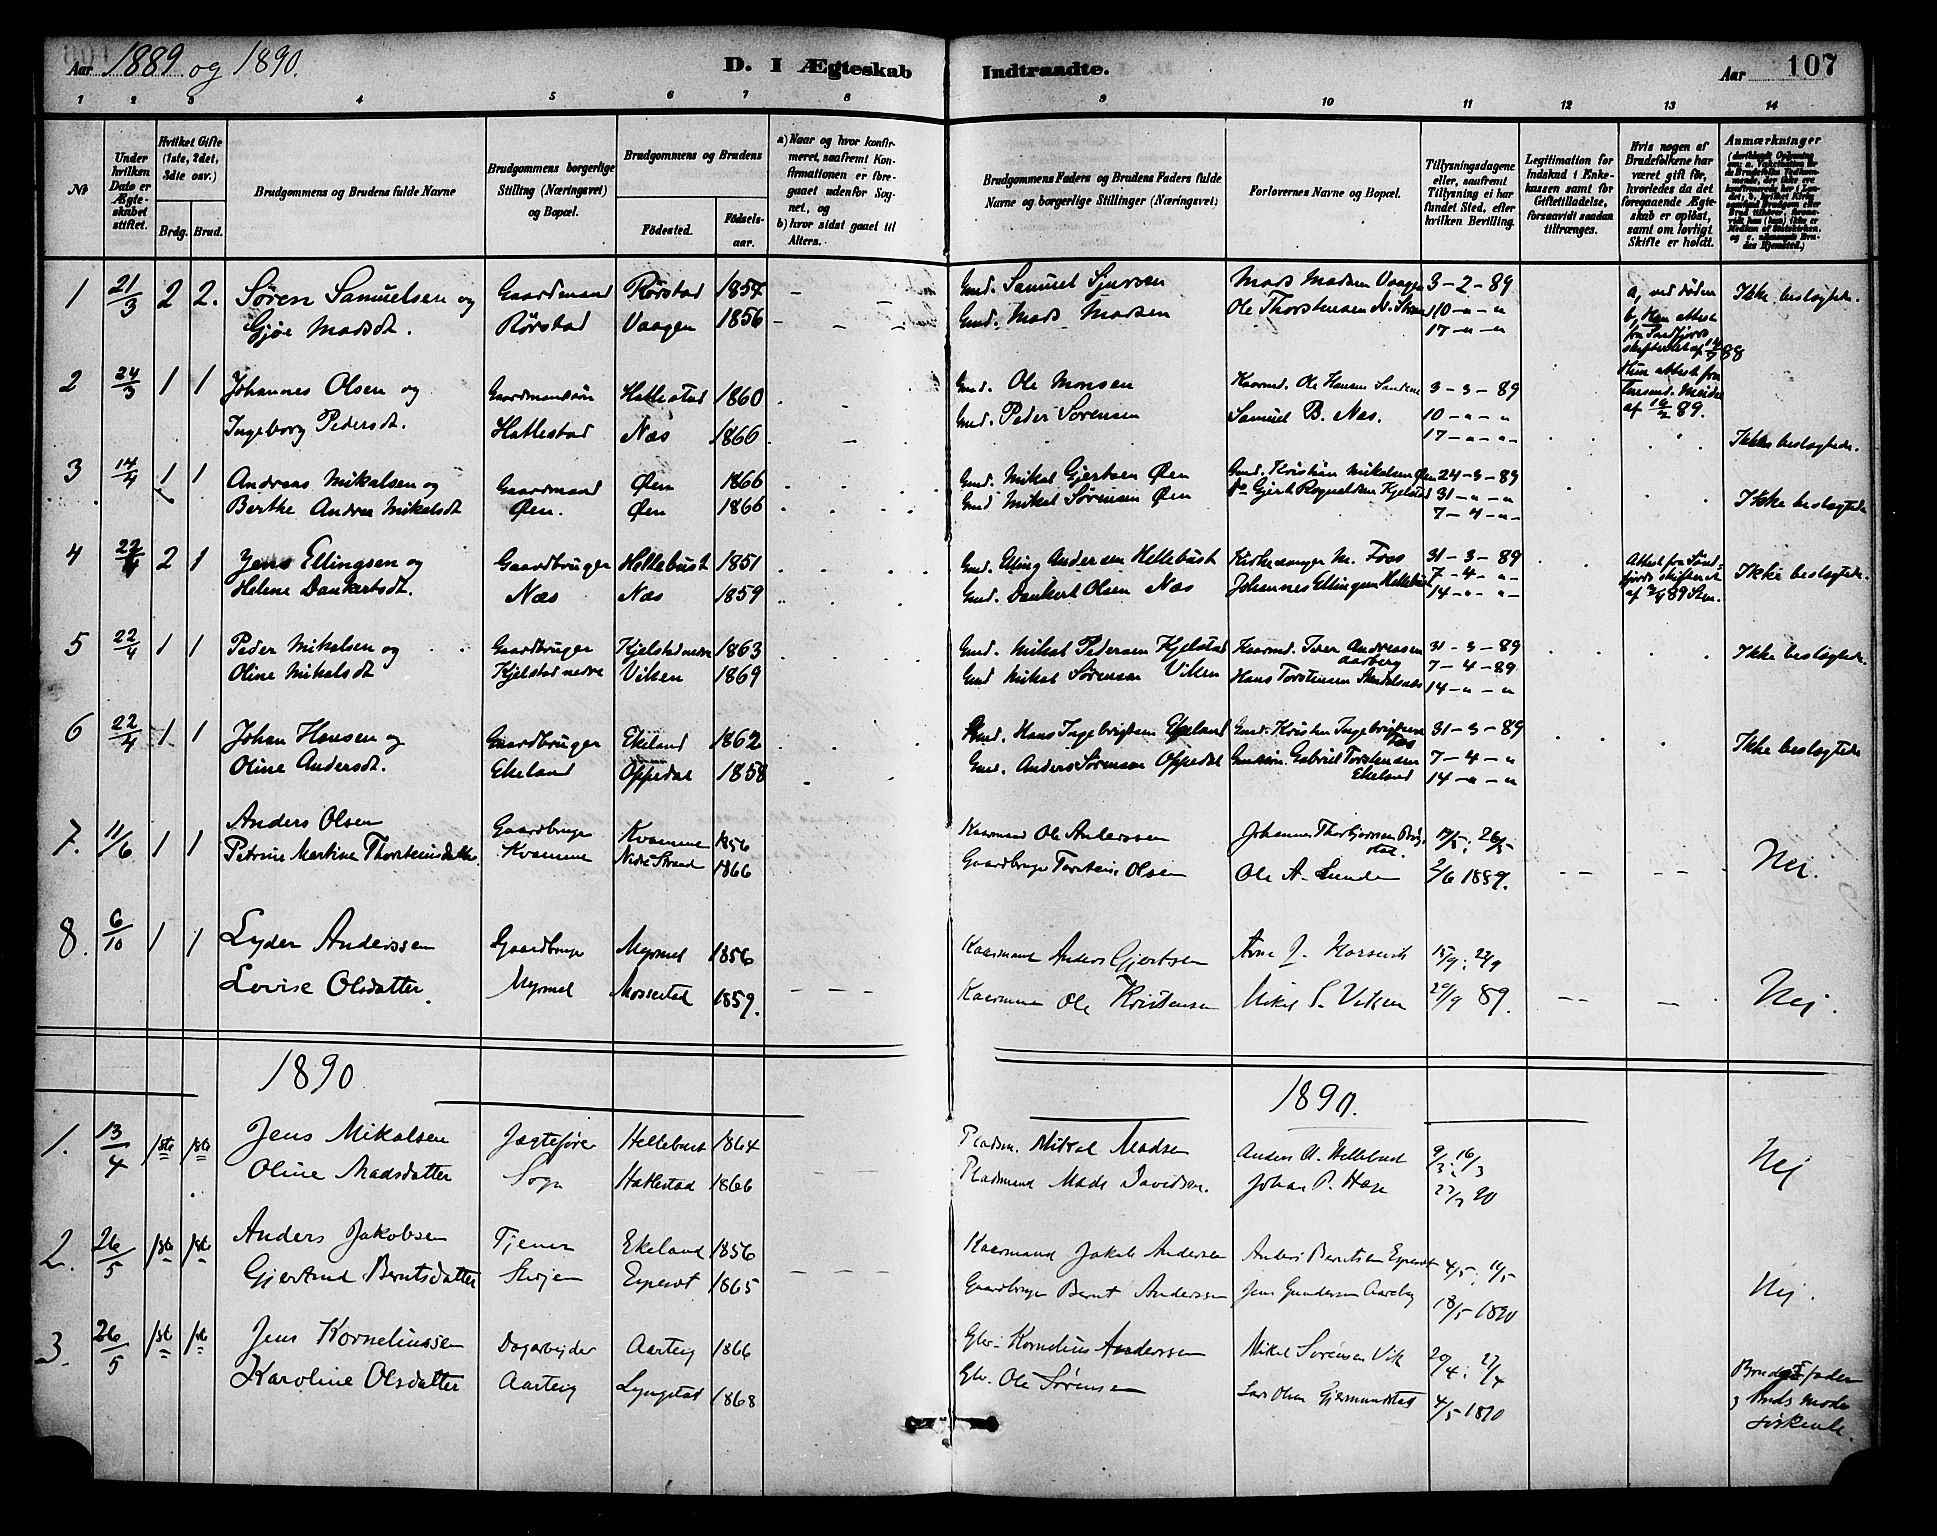 Aar 1889 og 1890.
D. I Ægteskab Indtraadte.
Aar 107
1 2 3 4 5 6 7 8 9 10 11 12 13 14
No
Under hvilken Dato er Ægteskabet stiftet.
Hvilket Gifte (1ste, 2det, 3die osv.)
Brdg. Brud.
Brudgommens og Brudens fulde Navne
Brudgommens borgerlige Stilling (Næringsvei) og Bopæl.
Brudgommens og Brudens
Fødested. Fødselsaar.
a) Naar og hvor konfirmeret, saafremt Konfirmationen er foregaaet udenfor Sognet, og
b) hvor sidst gaaet til Alters.
Brudgommens Faders og Brudens Faders fulde Navne og borgerlige Stillinger (Næringsvei)
Forlovernes Navne og Bopæl.
Tillysningsdagene eller, saafremt Tillysning ei har fundet Sted, efter hvilken Bevilling.
Legitimation for Indskud i Enkekassen samt for Giftetilladelse, forsaavidt saadan tiltrænges.
Hvis nogen af Brudefolkene har været gift før, hvorledes da det foregaaende Ægteskab er opløst, samt om lovligt Skifte er holdt.
Anmærkninger
1 21/3 2 2. Søren Samuelsen og Gaardmand Rørstad 1857 Gmd. Samuel Sjursen Mads Madsen Vaagen 3-2-89 a, ved døden Ikke beslagtede.
Gjøe Madsdt. Rørstad Vaagen 1856 Gmd. Mads Madsen Ole Thorstensen 10-"-" b, Han attest
17-"-" fra Søndfjords
skifteret af 14/9 88
2 24/3 1 1 Johannes Olsen og Gaardmandssøn Hattestad 1860 Gmd. Ole Monsen Kaarmd. Ole Hansen 3-3-89 Hun attest fra
Ingeborg Pedersdt. Hattestad Næs 1866 Gmd. Peder Sørensen Samuel B. Næs. 10-"-" af 89.
17-"-" Ikke beslagtede.
3 14/4 1 1 Andreas Mikalsen og Gaardmand Øen 1866 Gmd. Mikal Gjertsen Øen Gmd. Kristian Mikalsen Øen 24-3-89
Berthe Andrea Mikalsdt Øen. Øen 1866 Gmd Mikal Sørensen Øen do Gjert Rognaldsen Kjelstad 31-"-" Ikke beslagtede
7-4-"
4 22/4 2 1 Jens Ellingsen og Gaardbruger Hellebust 1851 Gmd. Elling Andersen Hellebust Kirkesanger M. Foss 31-3-89 Attest fra Sønd-
Helene Dankertsdt. Næs Næs 1859 Gmd. Dankert Olsen Næs Johannes Ellingsen Hellebust 7-4-" fjords skifteret Ikke beslagtede.
14-"-"
5 22/4 1 1 Peder Mikalsen og Gaardbruger Kjelstad nedre 1863 Gmd. Mikal Pedersen Kjelstad Kaarmd. Iver Andreassen Aarberg 31-3-89
Oline Mikalsdt Kjelstad nedre Viken 1869 Gmd Mikal Sørensen Viken Hans Torstensen 7-4-89 Ikke beslagtede.
14-"-"
6 22/4 1 1 Johan Hansen og Gaardbruger Ekeland 1862 Gmd. Hans Ingebrigtsen Ekeland Gmd. Kristen Ingebrigtsen Foss 31-3-89
Oline Andersdt. Ekeland Oppedal 1858 Gmd. Anders Sørensen Oppedal Gmdsøn. Gabriel Torstensen Ekeland 7-4-" Ikke beslagtede
14-"-"
7. 11/6 1 1 Anders Olsen Gaardbruger Kvamme 1856 Kaarmand Ole Anderssen Johannes Thorbjørnsen 19/5; 26/5
Petrine Martine Thorsteinsdatter. Kvamme Nedre Strand 1866 Gaardbruger Torstein Olsen Ole A. Lunde 2/6 1889. Nei.
8. 6/10 1 1 Lyder Anderssen Gaardbruger Myrmel 1856 Kaarmand Anders Gjertsen Arne J. 15/9; 22/9
Lovise Olsdatter. Myrmel Mossestad 1859. Kaarmann Ole Kristensen Mikel S. Viken 29/9 89. Nej.
1890 1890.
1. 13/4 1ste 1ste Jens Mikalsen Jægtefører Hellebust 1864 Pladsm. Mikal Madsen Anders A. Hellebust 9/3; 16/3
Oline Madsdatter Sogn Hattestad 1866 Pladsmand Mads Davidsen. Johan P. 23/3 90 Nej
2. 26/5 1ste 1ste Anders Jakobsen Tjener Ekeland 1856 Kaarmand Jakob Andersen Anders Berntsen Espeset 4/5; 11/5
Gjertrud Berntsdatter Espeset 1865 Gaardbruger Bernt Anderssen Jens Gundersen Aareby 18/5 1890 Nej.
3. 26/5 1ste 1ste Jens Korneliussen Dagarbejder Aarteig 1866 Gbr. Kornelius Anderssen Mikel Sørensen Vik 20/4; 27/4
Karoline Olsdatter Aarteig Lyngstad 1868 Gbr. Ole Sørensen Lars Olsen Gjermundstad 4/5 1890
Brudg. fader
og Bruds moder
søskende.